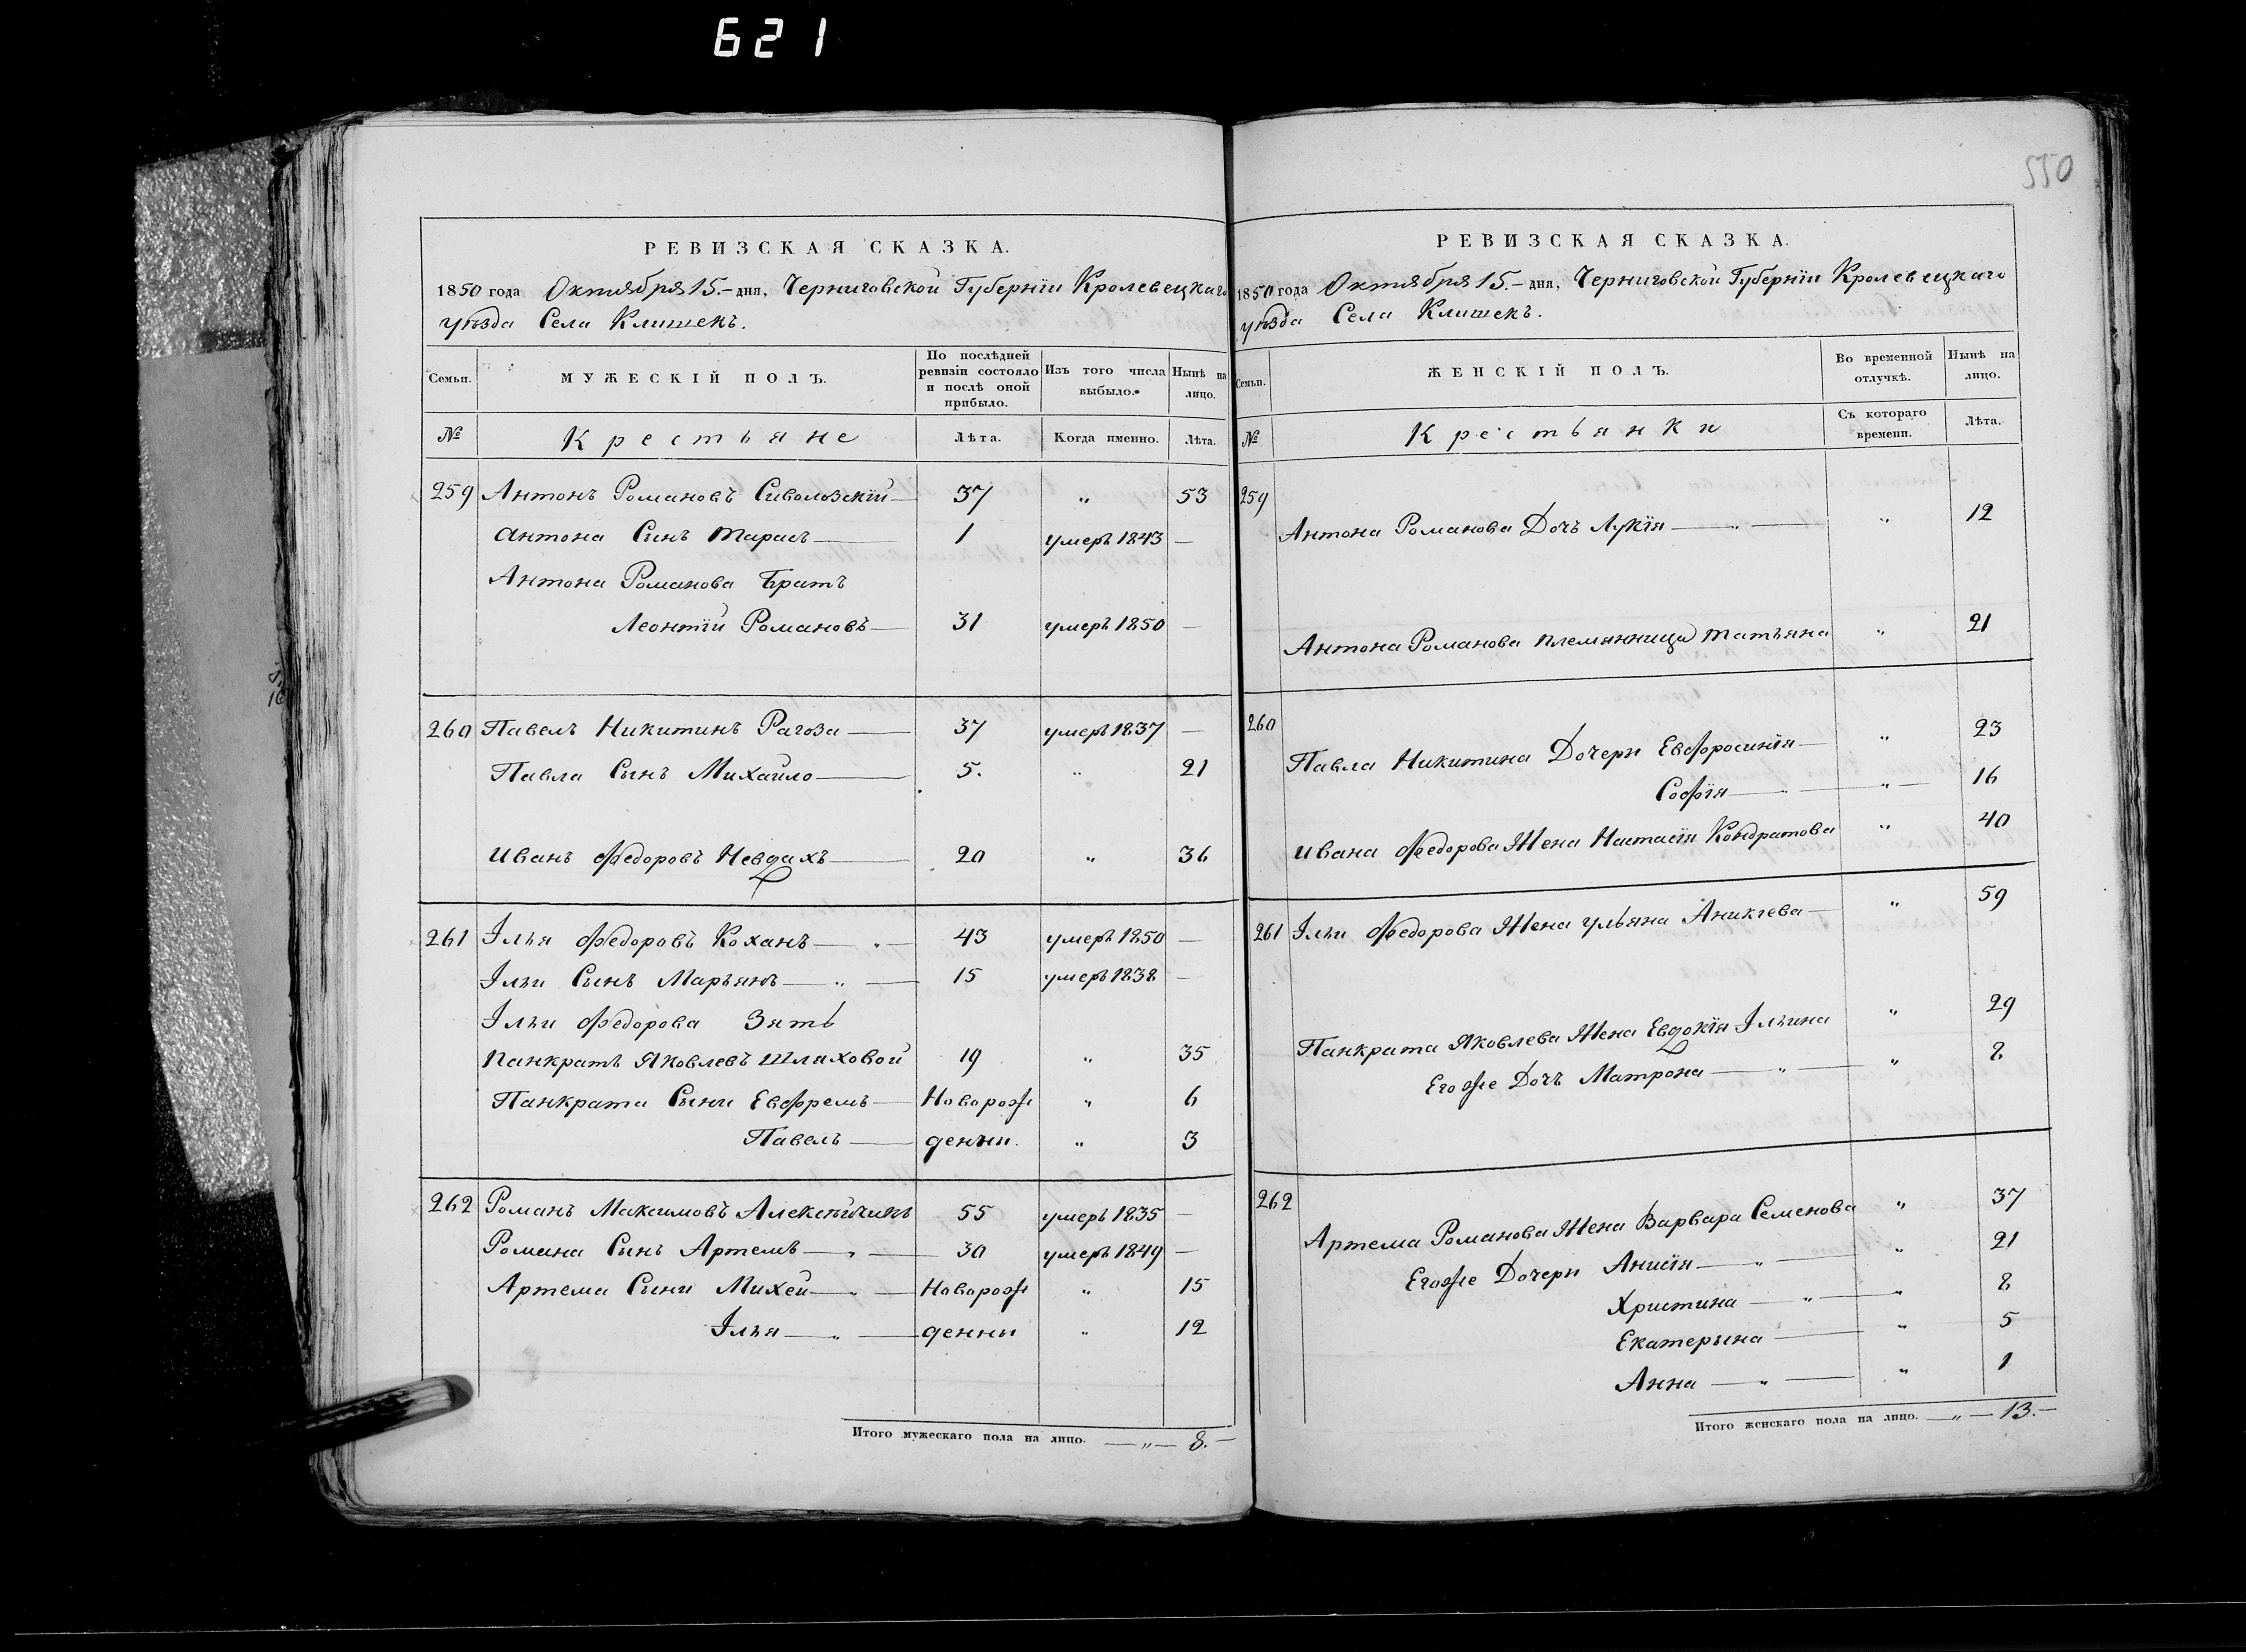 621
550
РЕВИЗСКАЯ СКАЗКА.
1850 года Октября 15.– дня, Черниговской Губернїи Кролевецкаго
уѣзда Села Клишекъ.
Семьи. МУЖЕСКІЙ ПОЛЪ. По послѣдней ревизіи состояло и послѣ оной прибыло. Изъ того числа выбыло. Нынѣ на лицо.
№ Крестьяне Лѣта. Когда именно. Лѣта.
259 Антонъ Романовъ Сиволозскїй 37 „ 53
Антона Сынъ Тарасъ 1 умеръ 1843 —
Антона Романова Братъ
Леонтїй Романовъ 31 умеръ 1850 —
260 Павелъ Никитинъ Рагоза 37 умеръ 1837 —
Павла Сынъ Михайло 5. „ 21
Иванъ Федоровъ Невдахъ 20 „ 36
261 Ілья Федоровъ Коханъ 43 умеръ 1850 —
Ільи Сынъ Марьянъ 15 умеръ 1838 —
Ільи Федорова Зять
Панкратъ Яковлевъ Шляховой 19 „ 35
Панкрата Сыни ЕвфремъНоворож „ 6
Павелъ денни. „ 3
262 Романъ Максимовъ 55 умеръ 1835 —
Романа Сынъ Артемъ 30 умеръ 1849 —
Артема Сыни Михей Новорож „ 15
Ілья денни „ 12
Итого мужескаго пола на лицо. — „ — 8.–
РЕВИЗСКАЯ СКАЗКА.
1850 года Октября 15.– дня, Черниговской Губернїи Кролевецкаго
уѣзда Села Клишекъ.
Семьи. ЖЕНСКІЙ ПОЛЪ. Во временной отлучкѣ. Нынѣ на лицо.
№ Крестьянки Съ котораго времени. Лѣта.
259
Антона Романова Дочь Лукїя „ 12
Антона Романова племянница Татьяна „ 21
260
Павла Никитина Дочери Евфросинїя „ 23
Софїя „ 16
Ивана Федорова Жена Настасїя Кондратова „ 40
261 Ільи Федорова Жена Ульяна Аникѣева „ 59
Панкрата Яковлева Жена Евдокїя Ільина „ 29
Егоже Дочь Матрона „ 8
262
Артема Романова Жена Варвара Семенова „ 37
Егоже Дочери Анисїя „ 21
Христина „ 8
Екатерына „ 5
Анна „ 1
Итого женскаго пола на лицо. — „ — 13.–